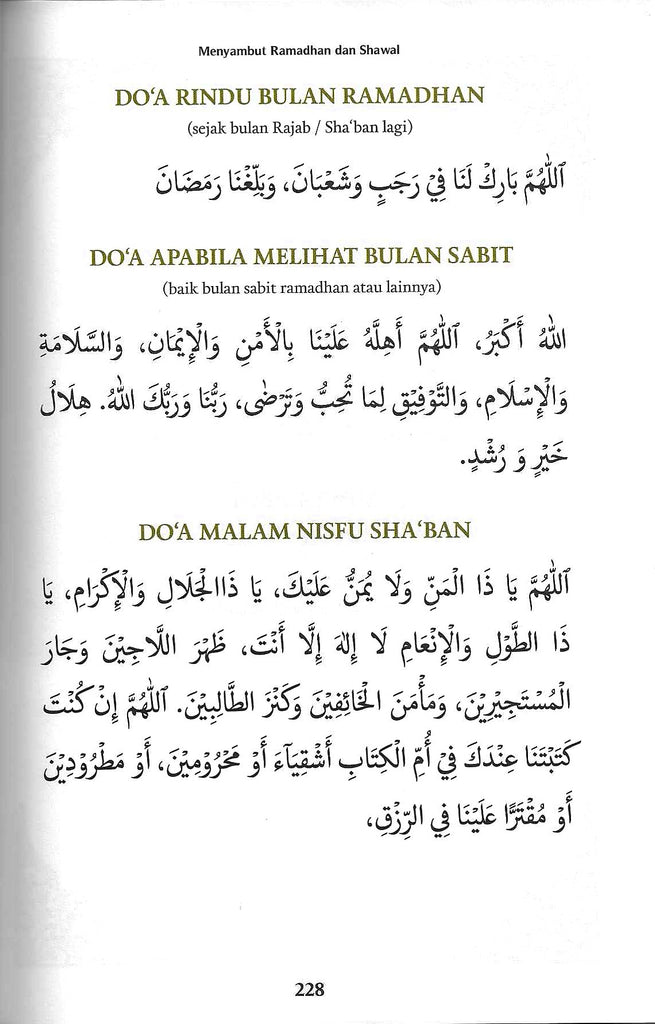 Menyambut Ramadhan dan Shawal
DO‘A RINDU BULAN RAMADHAN
(sejak bulan Rajab / Sha‘ban lagi)
ٱللّٰهُمَّ بَارِكْ لَنَا فِيْ رَجَبٍ وَشَعْبَانَ، وَبَلِّغْنَا رَمَضَانَ
DO‘A APABILA MELIHAT BULAN SABIT
(baik bulan sabit ramadhan atau lainnya)
اللهُ أَكْبَرُ، ٱللّٰهُمَّ أَهِلَّهُ عَلَيْنَا بِالْأَمْنِ وَالْإِيْمَانِ، وَالسَّلَامَةِ
وَالْإِسْلَامِ، وَالتَّوْفِيْقِ لِمَا تُحِبُّ وَتَرْضٰى، رَبُّنَا وَرَبُّكَ اللهُ. هِلَالُ
خَيْرٍ وَ رُشْدٍ.
DO‘A MALAM NISFU SHA‘BAN
ٱللّٰهُمَّ يَا ذَا الْمَنِّ وَلَا يُمَنُّ عَلَيْكَ، يَا ذَاالْجَلَالِ وَالْإِكْرَامِ، يَا
ذَا الطَّوْلِ وَالْإِنْعَامِ لَا إِلٰهَ إِلَّا أَنْتَ، ظَهْرَ اللَّاجِيْنَ وَجَارَ
الْمُسْتَجِيْرِيْنَ، وَمَأْمَنَ الْخَائِفِيْنَ وَكَنْزَ الطَّالِبِيْنَ. ٱللّٰهُمَّ إِنْ كُنْتَ
كَتَبْتَنَا عِنْدَكَ فِيْ أُمِّ الْكِتَابِ أَشْقِيَآءَ أَوْ مَحْرُومِيْنَ، أَوْ مَطْرُوْدِيْنَ
أَوْ مُقْتَرًّا عَلَيْنَا فِي الرِّزْقِ،
228